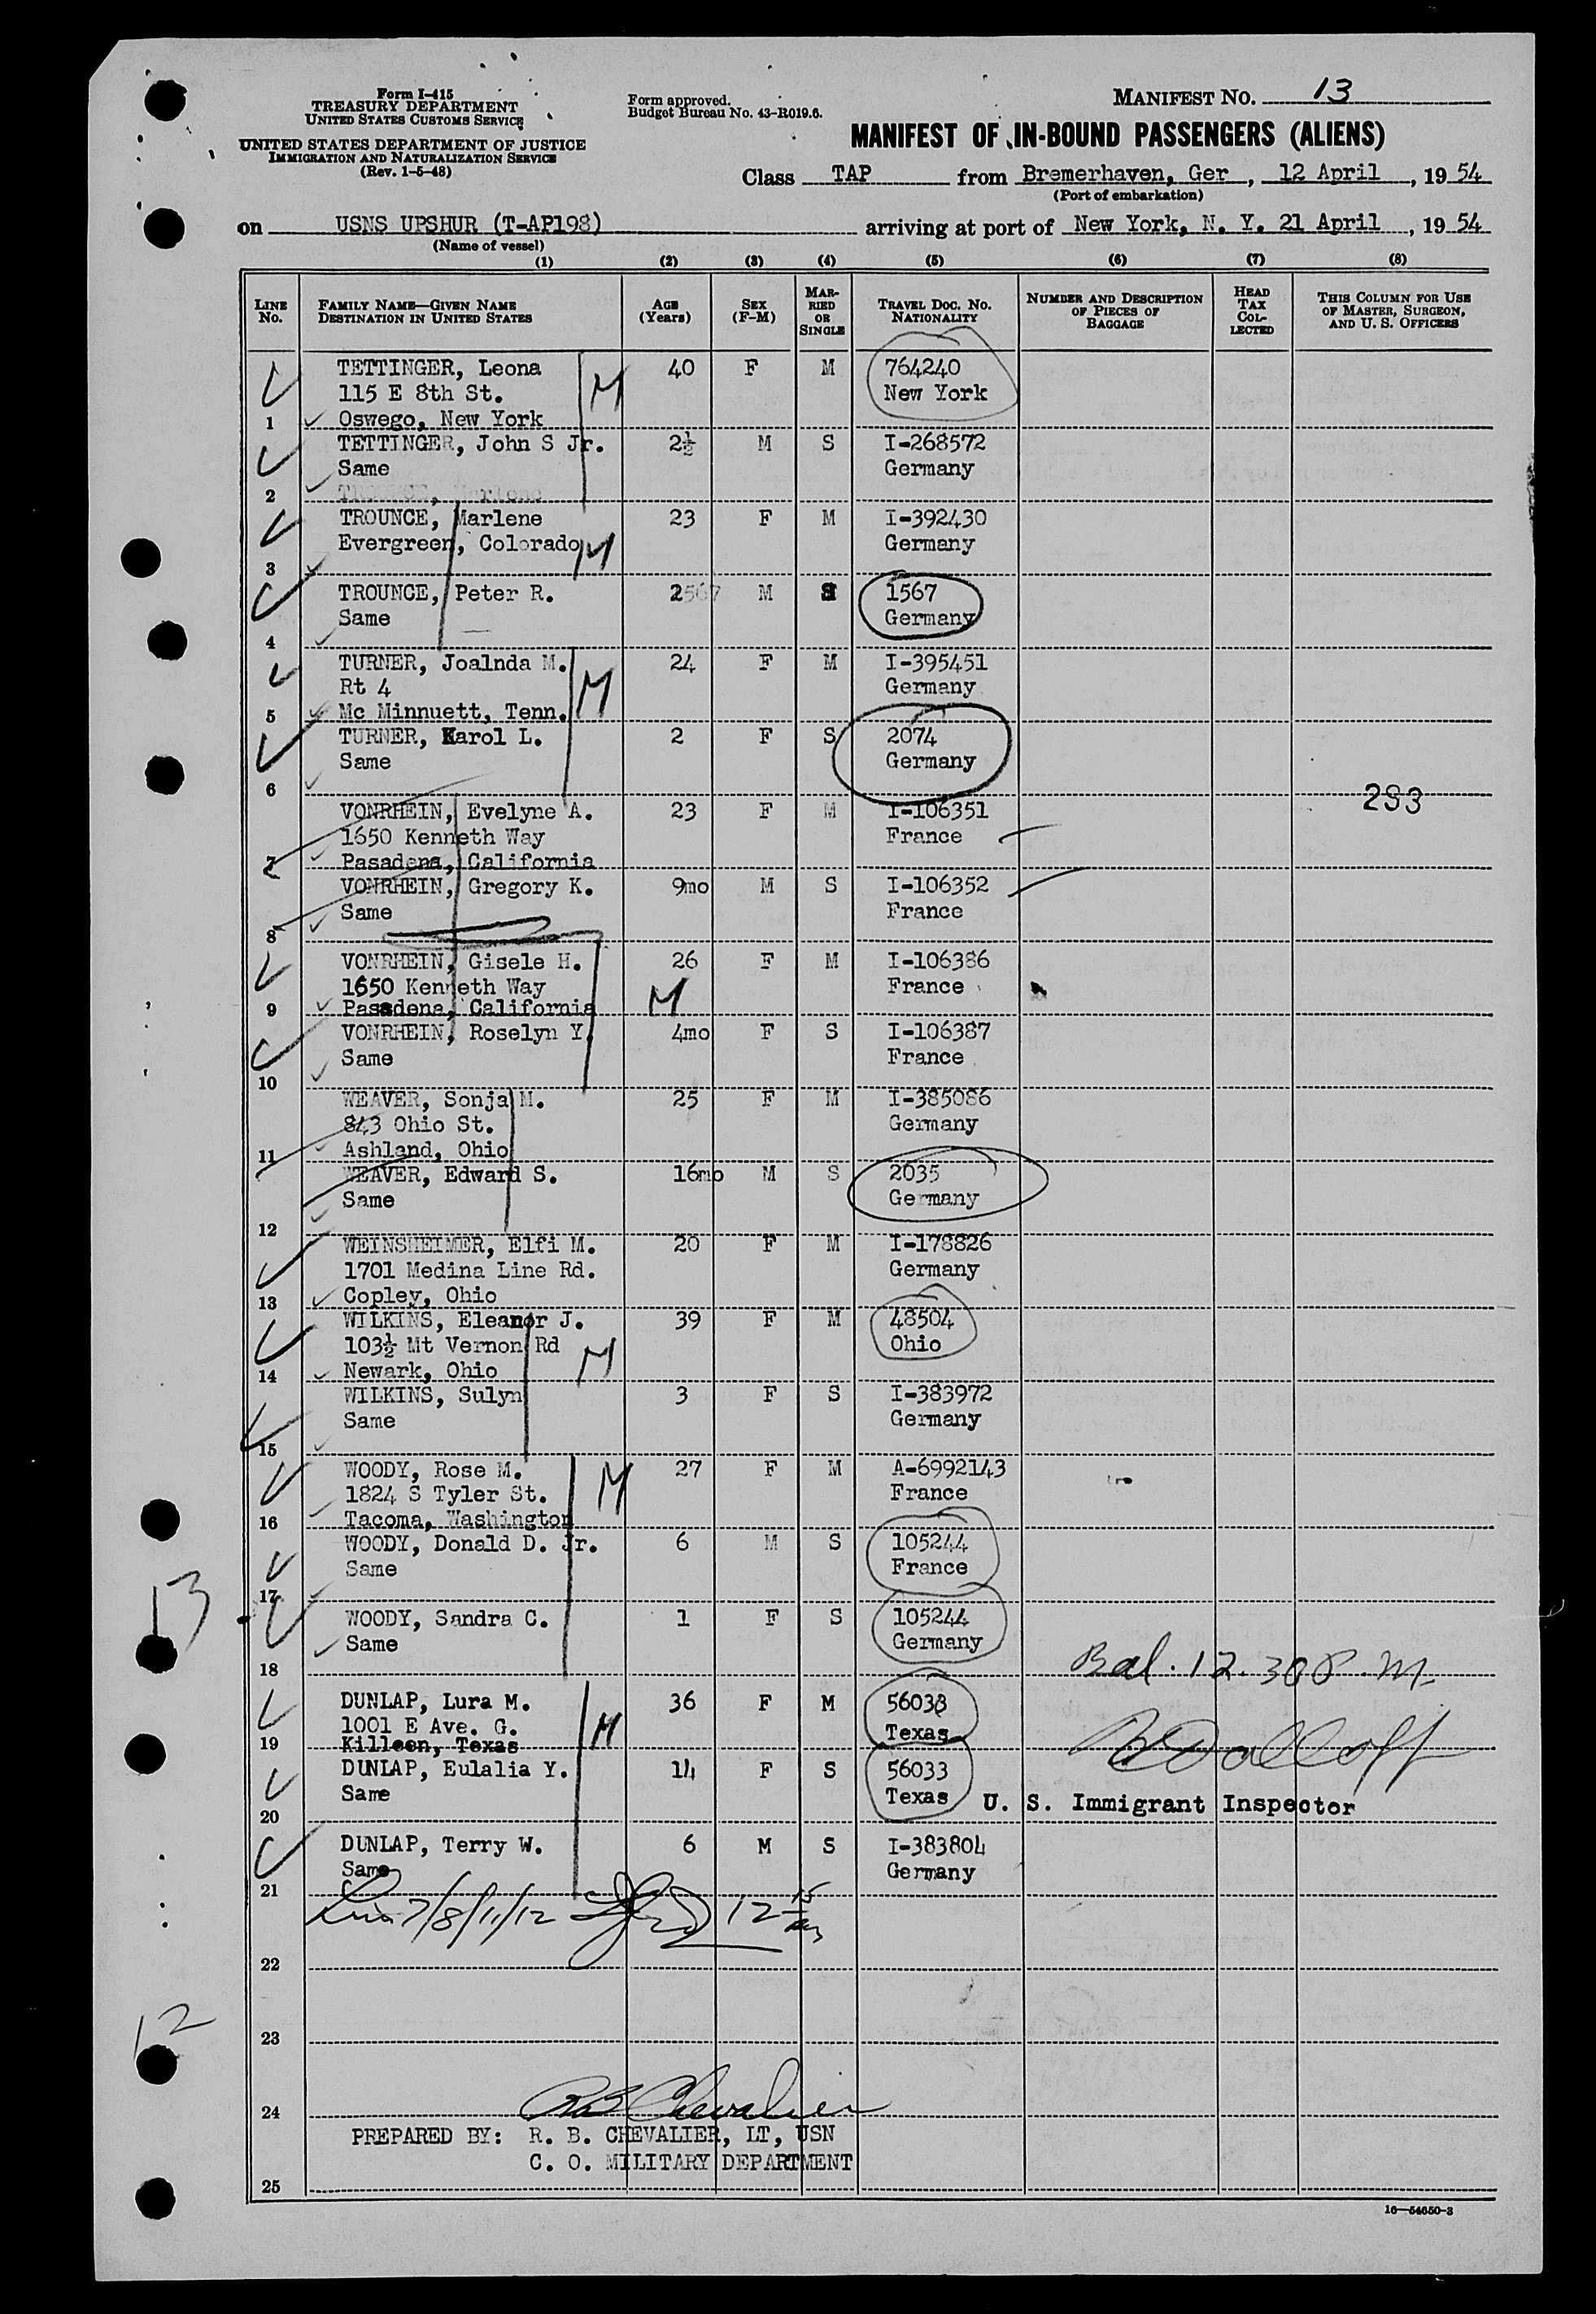 Form I-415
TREASURY DEPARTMENT
UNITED STATES CUSTOMS SERVICE
UNITED STATES DEPARTMENT OF JUSTICE
IMMIGRATION AND NATURALIZATION SERVICE
(Rev. 1-5-48)
Form approved.
Budget Bureau No. 43-R019.6.
MANIFEST NO. 13
MANIFEST OF IN-BOUND PASSENGERS (ALIENS)
Class TAP from Bremerhaven, Ger, 12 April, 1954
(Port of embarkation)
on USNS UPSHUR (T-AP198) arriving at port of New York, N. Y. 21 April, 1954
(Name of vessel)
(1) (2) (3) (4) (5) (6) (7) (8)
LINE NO.
FAMILY NAME—GIVEN NAME
DESTINATION IN UNITED STATES
AGE (Years)
SEX (F-M)
MARRIED OR SINGLE
TRAVEL DOC. NO.
NATIONALITY
NUMBER AND DESCRIPTION OF PIECES OF BAGGAGE
HEAD TAX COLLECTED
THIS COLUMN FOR USE OF MASTER, SURGEON, AND U. S. OFFICERS
TETTINGER, Leona 40 F M 764240
115 E 8th St. M New York
1 Oswego, New York
TETTINGER, John S Jr. 2½ M S I-268572
Same Germany
2
TROUNCE, Marlene 23 F M I-392430
Evergreen, Colorado M Germany
3
TROUNCE, Peter R. 2 M S 1567
Same Germany
4
TURNER, Joalnda M. 24 F M I-395451
Rt 4 M Germany
5 Mc Minnuett, Tenn.
TURNER, Karol L. 2 F S 2074
Same Germany
6
293
VONRHEIN, Evelyne A. 23 F M I-106351
1650 Kenneth Way France
7 Pasadena, California
VONRHEIN, Gregory K. 9mo M S I-106352
Same France
8
VONRHEIN, Gisele H. 26 F M I-106386
1650 Kenneth Way M France
9 Pasadena, California
VONRHEIN, Roselyn Y. 4mo F S I-106387
Same France
10
WEAVER, Sonja M. 25 F M I-385086
843 Ohio St. Germany
11 Ashland, Ohio
WEAVER, Edward S. 16mo M S 2035
Same Germany
12
WEINSHEIMER, Elfi M. 20 F M I-178826
1701 Medina Line Rd. Germany
13 Copley, Ohio
WILKINS, Eleanor J. 39 F M 48504
103½ Mt Vernon Rd M Ohio
14 Newark, Ohio
WILKINS, Sulyn 3 F S I-383972
Same Germany
15
WOODY, Rose M. 27 F M A-6992143
1824 S Tyler St. M France
16 Tacoma, Washington
WOODY, Donald D. Jr. 6 M S 105244
Same France
17
13
WOODY, Sandra C. 1 F S 105244
Same Germany
18
Bal. 12.30 P.M.
DUNLAP, Lura M. 36 F M 56033
1001 E Ave. G. M Texas
19 Killeen, Texas
DUNLAP, Eulalia Y. 14 F S 56033
Same Texas
U. S. Immigrant Inspector
20
DUNLAP, Terry W. 6 M S I-383804
Same Germany
21
7/8/11/12 12 15
22
12
23
24
R B Chevalier
PREPARED BY: R. B. CHEVALIER, LT, USN
C. O. MILITARY DEPARTMENT
25
16—54650-3